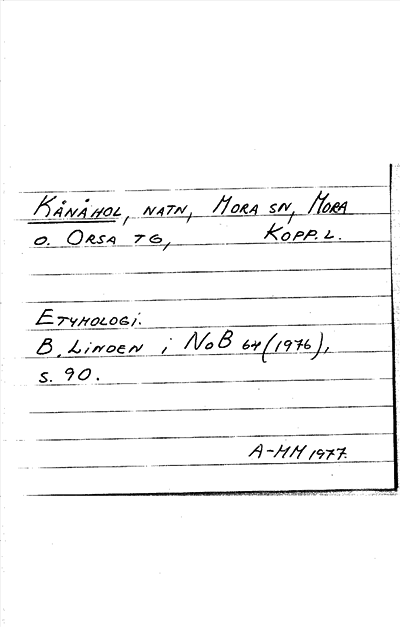 KÅNÅHOL, NATN, MORA SN, MORA
O. ORSA TG, KOPP. L.
ETYMOLOGI.
B. LINDEN i NoB 64 (1976),
S. 90.
A-MM 1977.